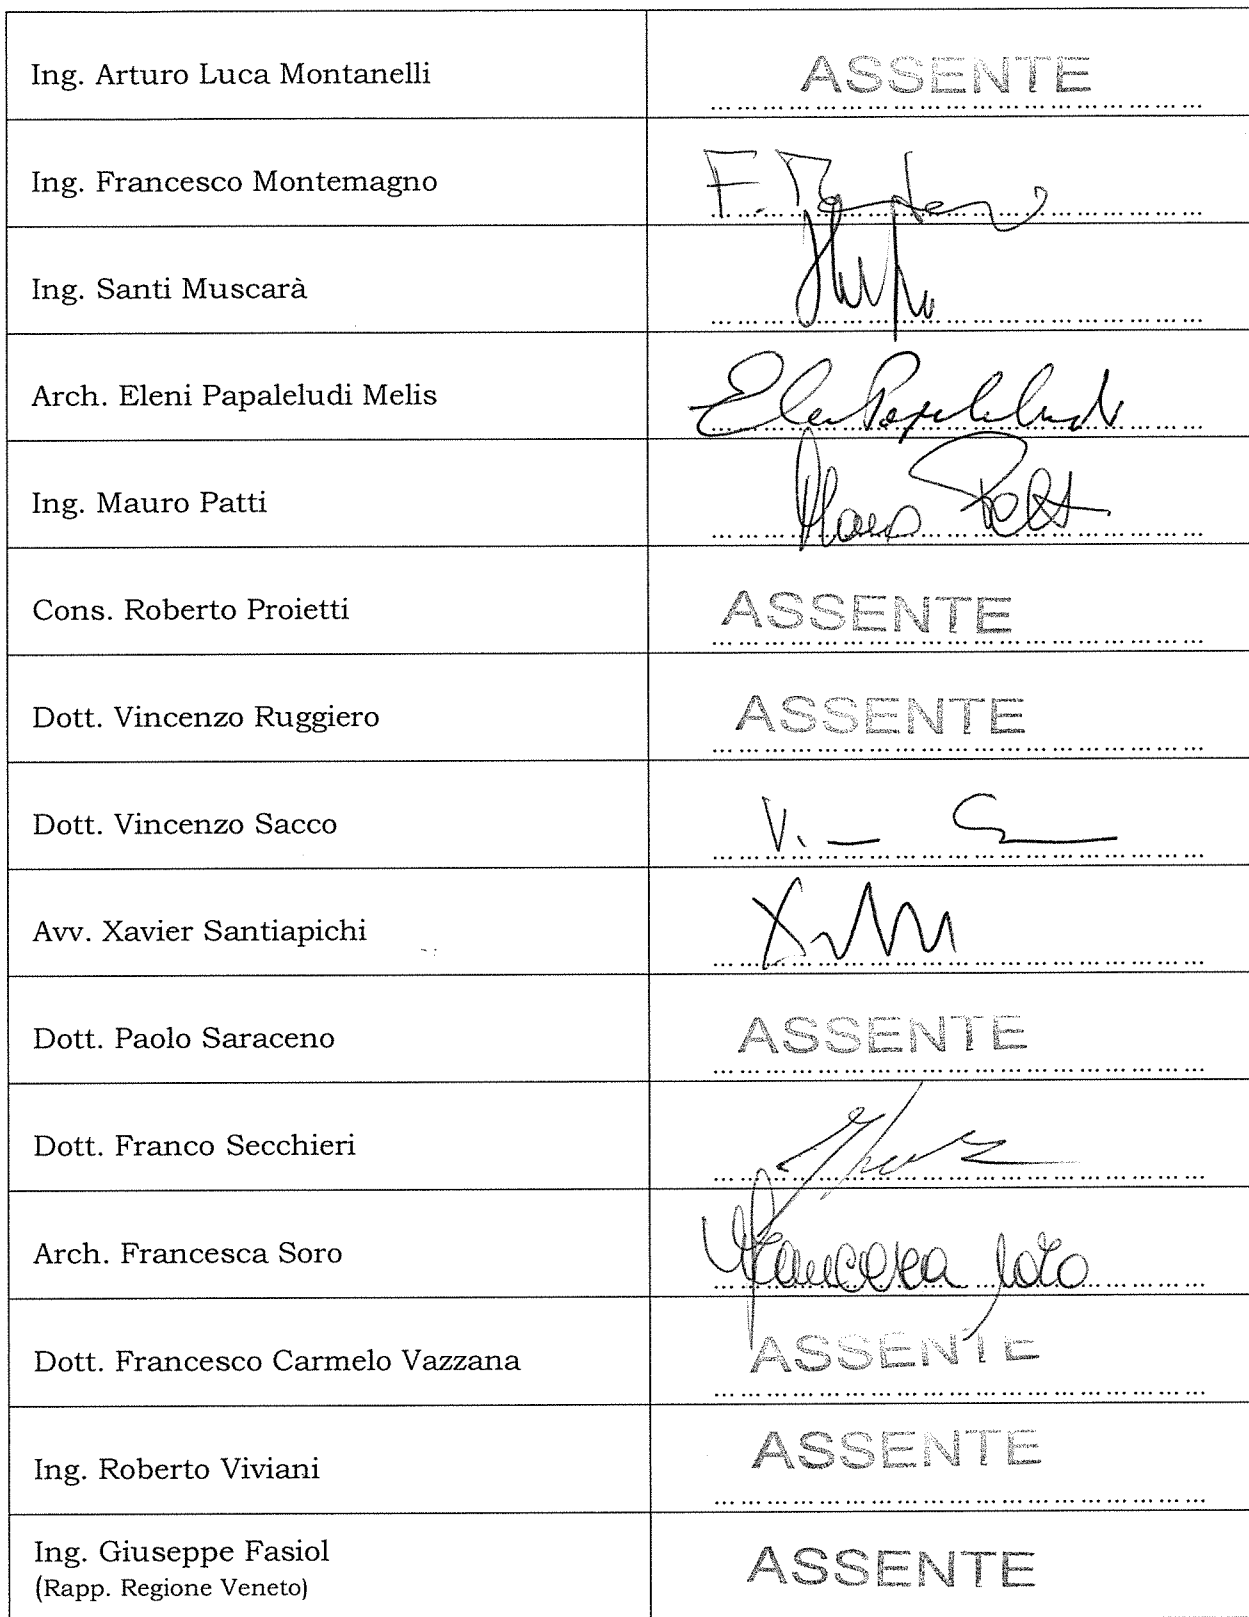 Ing. Arturo Luca Montanelli ASSENTE
Ing. Francesco Montemagno
Ing. Santi Muscarà
Arch. Eleni Papaleludi Melis
Ing. Mauro Patti
Cons. Roberto Proietti ASSENTE
Dott. Vincenzo Ruggiero ASSENTE
Dott. Vincenzo Sacco
Avv. Xavier Santiapichi
Dott. Paolo Saraceno ASSENTE
Dott. Franco Secchieri
Arch. Francesca Soro Francesca Soro
Dott. Francesco Carmelo Vazzana ASSENTE
Ing. Roberto Viviani ASSENTE
Ing. Giuseppe Fasiol ASSENTE
(Rapp. Regione Veneto)